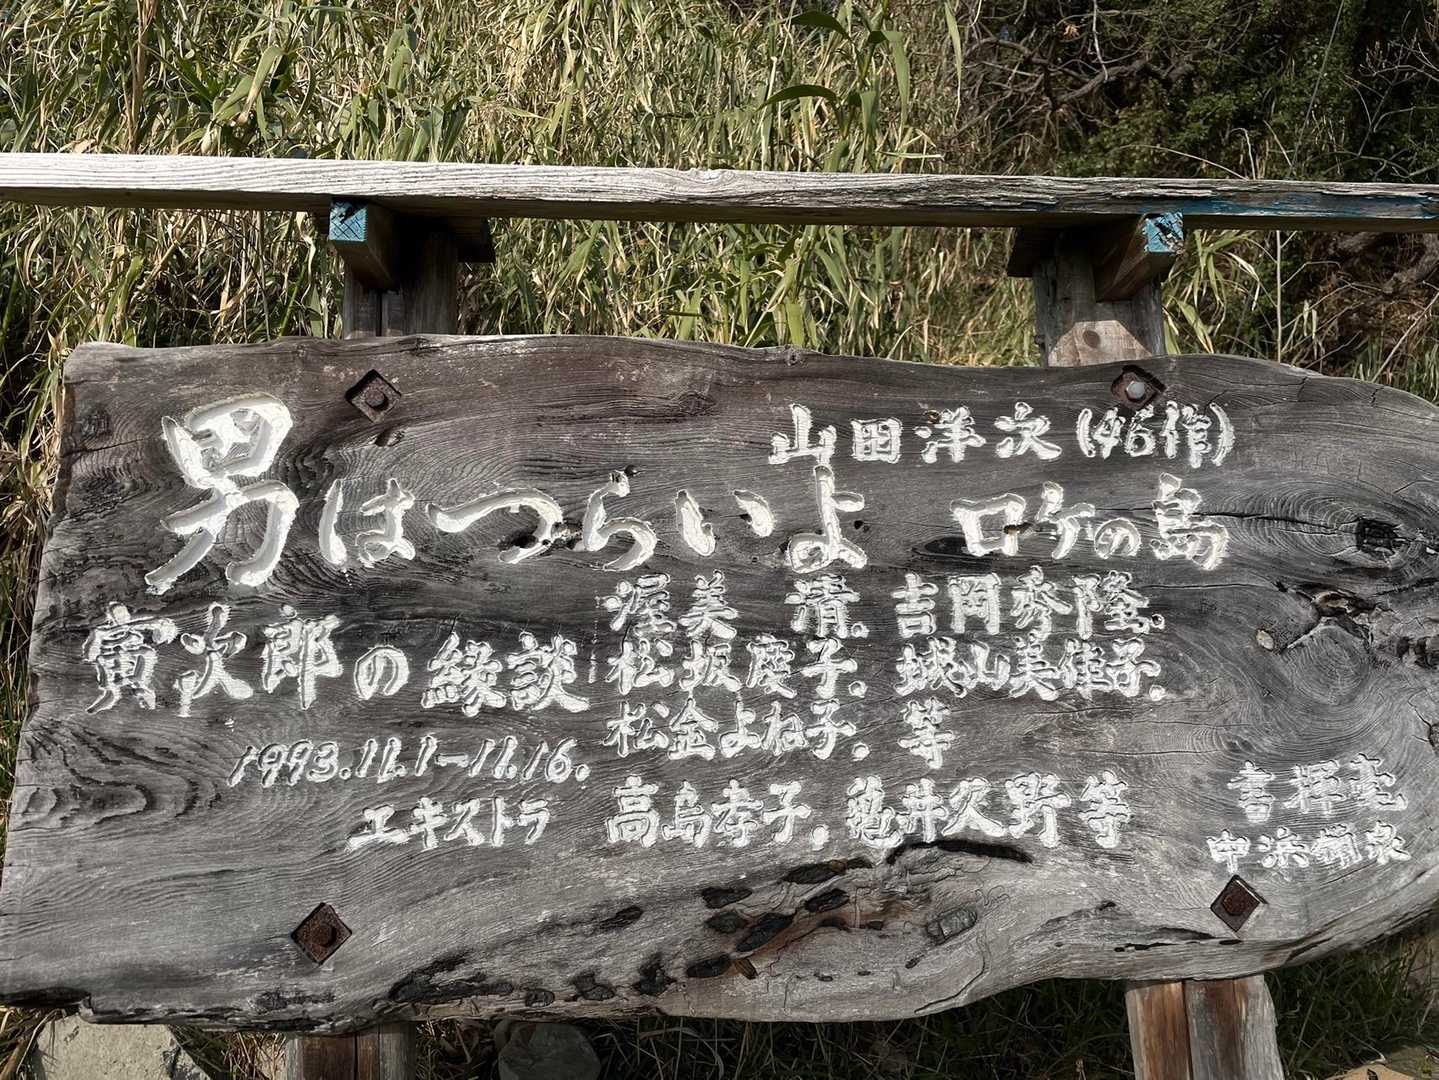 山田洋次(46作)
男はつらいよ ロケの島
寅次郎の縁談
渥美 清. 吉岡秀隆.
松坂慶子. 城山美佳子.
松金よね子. 等
1993.11.1-11.16.
エキストラ 高島孝子. 亀井久野等
書揮毫
中浜